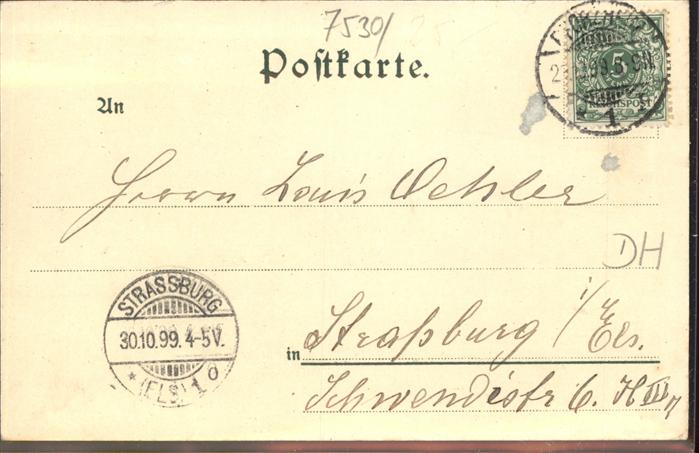 7530/
Postkarte.
5
REICHSPOST
An
Herrn Louis Oehler
DH
STRASSBURG
30.10.99. 4-5V.
* (ELS.) 1 o
in Straßburg i/Els.
Schwendistr 6. H III